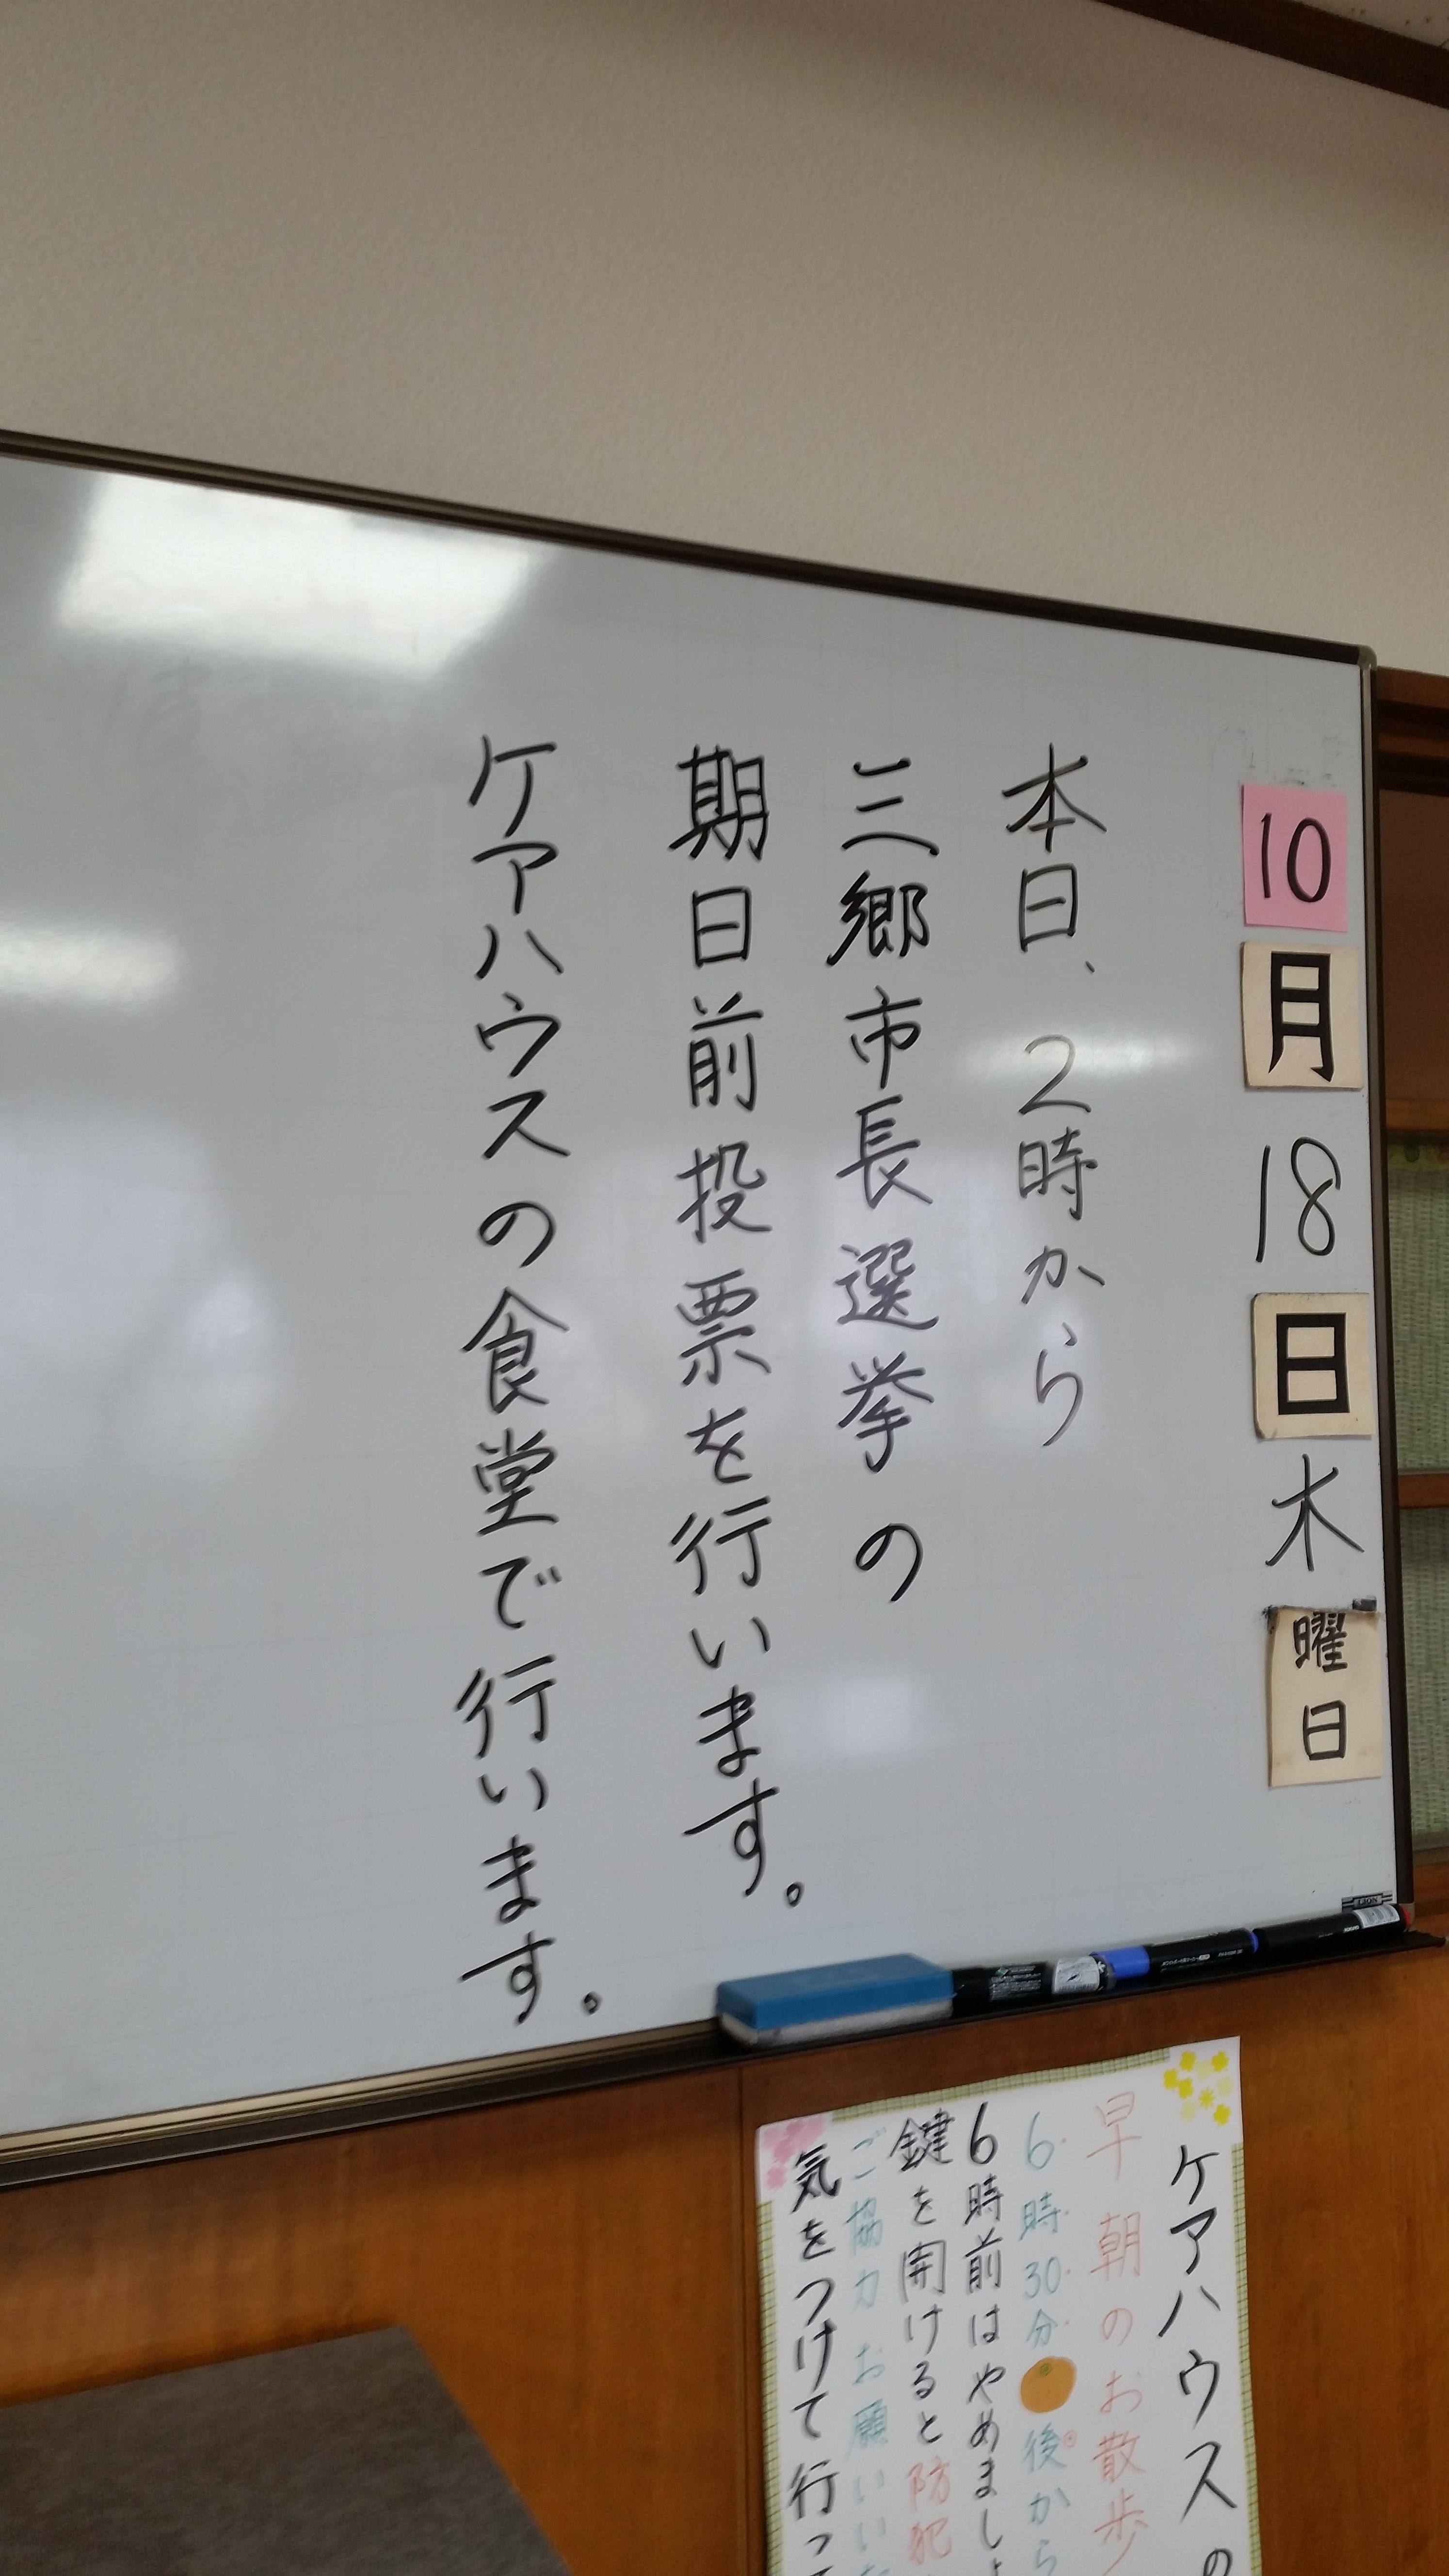 10月18日木曜日
本日、2時から
三郷市長選挙の
期日前投票を行います。
ケアハウスの食堂で行います。
LION
ケアハウスの
早朝のお散歩
6時30分後から
6時前はやめまし
鍵を開けると防犯
ご協力お願いいた
気をつけて行っ